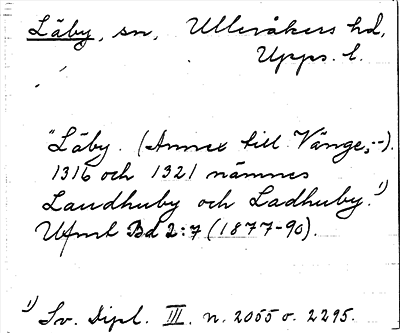 Läby, sn, Ulleråkers hd,
Upps. l.
"Läby. (Annex till Vänge,--).
1316 och 1321 nämnes
Landhuby och Ladhuby.¹)
Ufmt Bd 2:7 (1877-90).
¹) Sv. Dipl. III. n. 2055 o. 2295.